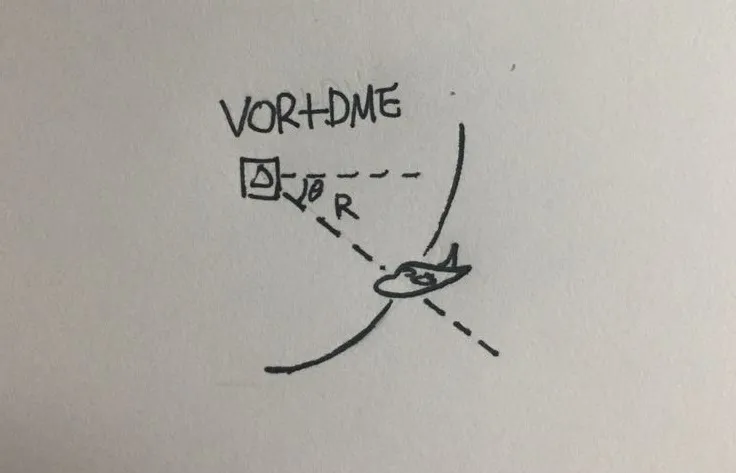 VOR+DME
θ
R